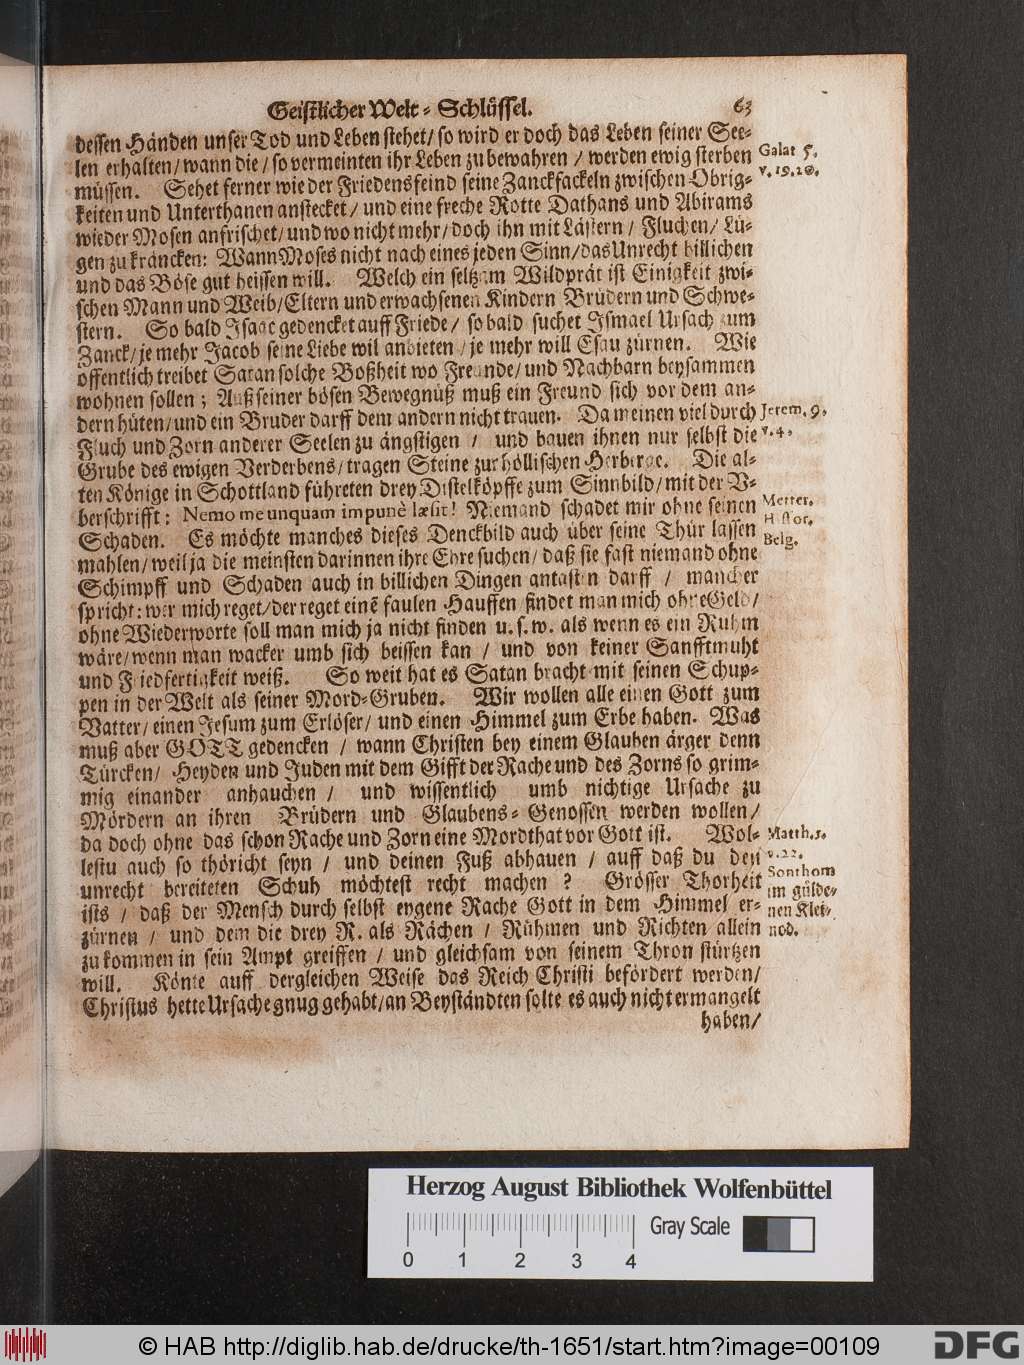 Geistlicher Welt-Schlüssel. 63
dessen Händen unser Tod und Leben stehet/ so wird er doch das Leben seiner See-
len erhalten/ wann die/ so vermeinten ihr Leben zu bewahren / werden ewig sterben
müssen. Sehet ferner wie der Friedensfeind seine Zanckfackeln zwischen Obrig-
keiten und Unterthanen anstecket/ und eine freche Rotte Dathans und Abirams
wieder Mosen anfrischet/ und wo nicht mehr/ doch ihn mit Lästern/ Fluchen/ Lü-
gen zu kräncken: Wann Moses nicht nach eines jeden Sinn/ das Unrecht billichen
und das Böse gut heissen will. Welch ein seltzam Wildprät ist Einigkeit zwi-
schen Mann und Weib/ Eltern und erwachsenen Kindern Brüdern und Schwe-
stern. So bald Isaac gedencket auff Friede/ so bald suchet Ismael Ursach zum
Zanck/ je mehr Jacob seine Liebe wil anbieten / je mehr will Esau zürnen. Wie
öffentlich treibet Satan solche Boßheit wo Freunde/ und Nachbarn beysammen
wohnen sollen; Auß seiner bösen Bewegnüß muß ein Freund sich vor dem an-
dern hüten/ und ein Bruder darff dem andern nicht trauen. Da meinen viel durch
Fluch und Zorn anderer Seelen zu ängstigen / und bauen ihnen nur selbst die
Grube des ewigen Verderbens/ tragen Steine zur höllischen Herberge. Die al-
ten Könige in Schottland führeten drey Distelköpffe zum Sinnbild/ mit der V-
berschrifft: Nemo me unquam impunè læsit! Niemand schadet mir ohne seinen
Schaden. Es möchte manches dieses Denckbild auch über seine Thür lassen
mahlen/ weil ja die meinsten darinnen ihre Ehre suchen/ daß sie fast niemand ohne
Schimpff und Schaden auch in billichen Dingen antasten darff / mancher
spricht: wer mich reget/ der reget einē faulen Hauffen findet man mich ohne Geld/
ohne Wiederworte soll man mich ja nicht finden u. s. w. als wenn es ein Ruhm
wäre/ wenn man wacker umb sich beissen kan / und von keiner Sanfftmuht
und Friedfertigkeit weiß. So weit hat es Satan bracht mit seinen Schup-
pen in der Welt als seiner Mord-Gruben. Wir wollen alle einen Gott zum
Vatter/ einen Jesum zum Erlöser/ und einen Himmel zum Erbe haben. Was
muß aber GOTT gedencken / wann Christen bey einem Glauben ärger denn
Türcken/ Heyden und Juden mit dem Gifft der Rache und des Zorns so grim-
mig einander anhauchen / und wissentlich umb nichtige Ursache zu
Mördern an ihren Brüdern und Glaubens-Genossen werden wollen/
da doch ohne das schon Rache und Zorn eine Mordthat vor Gott ist. Wol-
lestu auch so thöricht seyn / und deinen Fuß abhauen / auff daß du den
unrecht bereiteten Schuh möchtest recht machen ? Grösser Thorheit
ists / daß der Mensch durch selbst eygene Rache Gott in dem Himmel er-
zürnen / und dem die drey R. als Rächen / Rühmen und Richten allein
zukommen in sein Ampt greiffen / und gleichsam von seinem Thron stürtzen
will. Könte auff dergleichen Weise das Reich Christi befördert werden/
Christus hette Ursache gnug gehabt/ an Beyständten solte es auch nicht ermangelt
haben/
Galat 5.
v. 19. 20.
Jerem. 9.
v. 4.
Metter.
Histor.
Belg.
Matth. 5.
v. 22.
Sonthom
im gülde-
nen Klei-
nod.
Herzog August Bibliothek Wolfenbüttel
Gray Scale
0 1 2 3 4
© HAB http://diglib.hab.de/drucke/th-1651/start.htm?image=00109
DFG